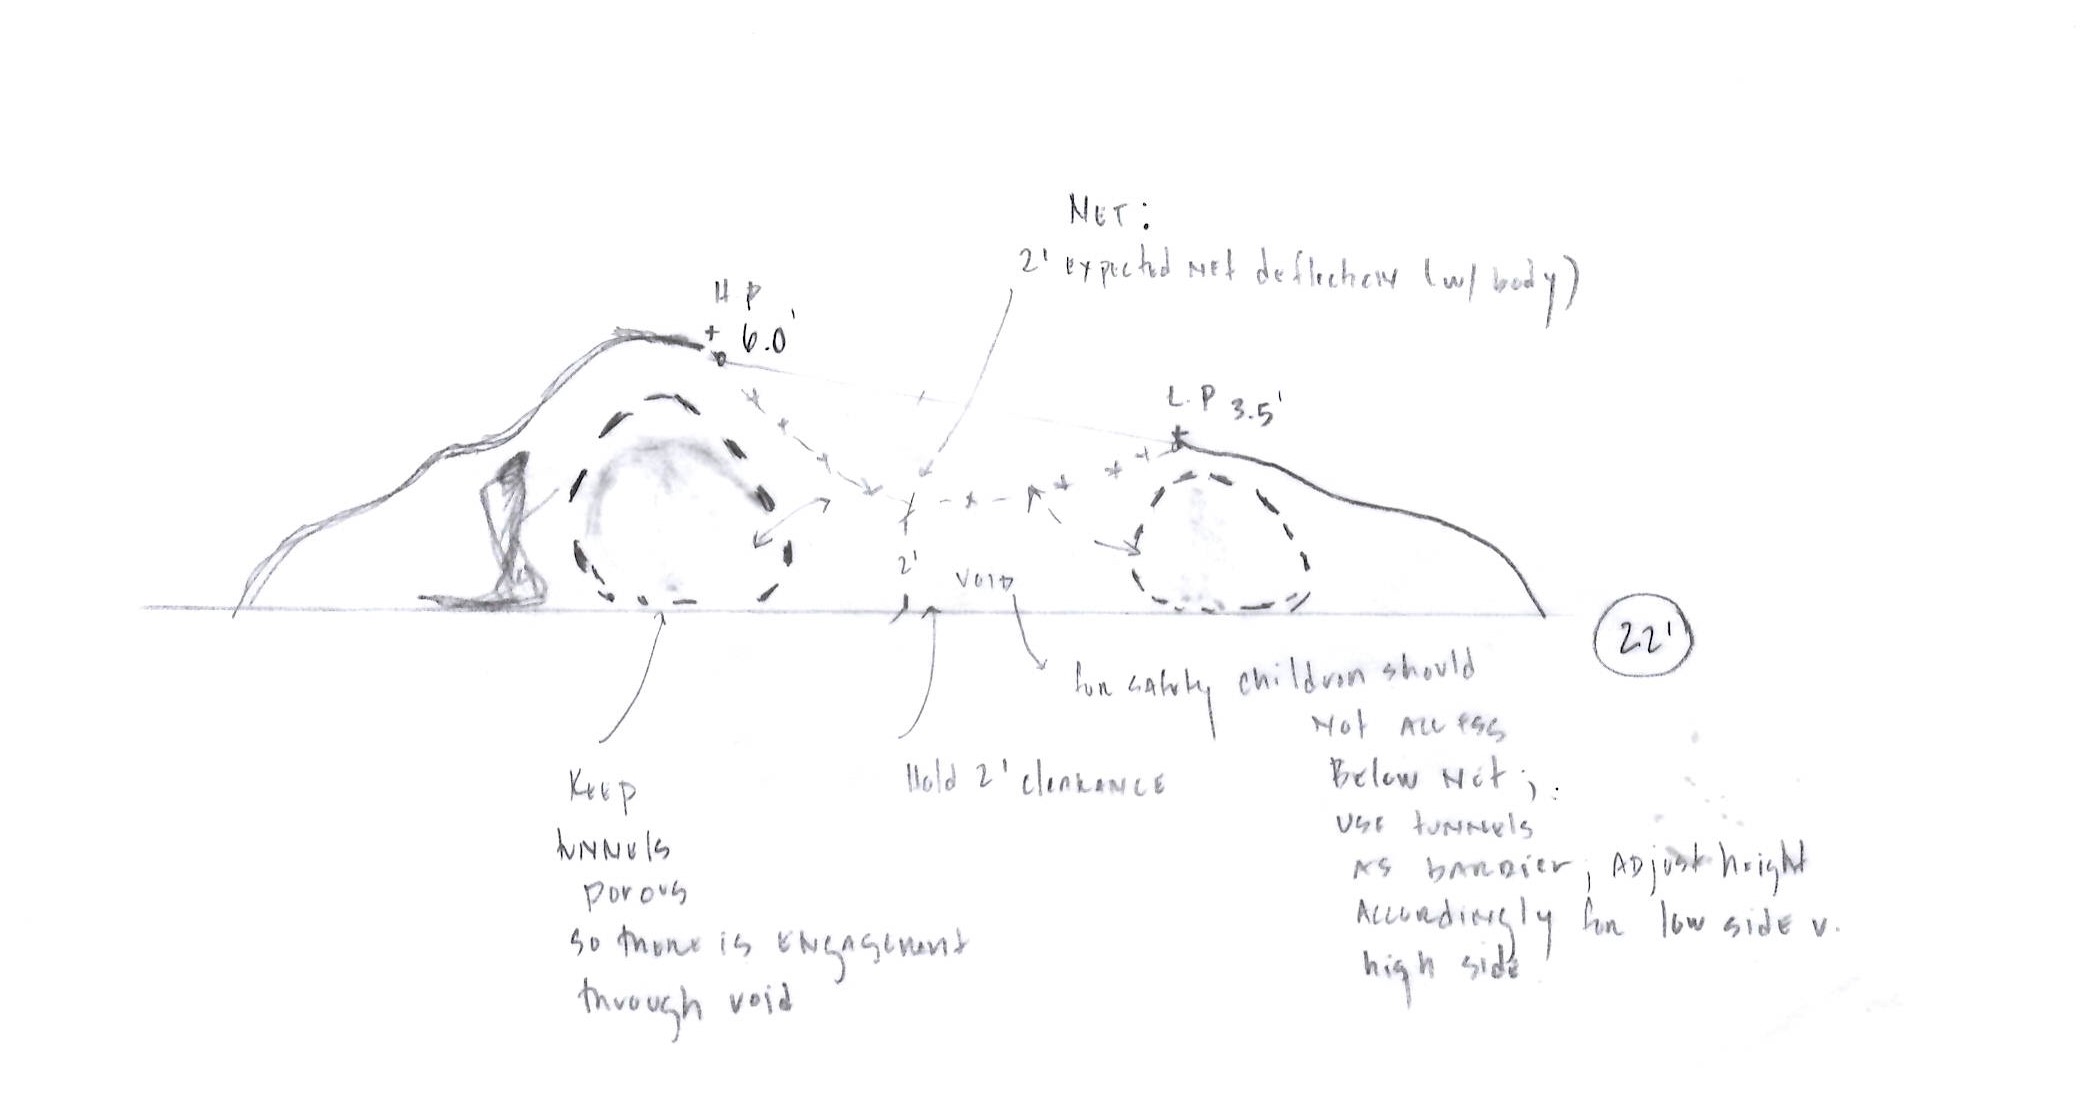 NET:
2' expected net deflection (w/ body)
H P
+ 6.0'
L.P 3.5'
2'
VOID
22'
for safety children should
Not Access
Below Net;
use tunnels
as barrier; Adjust height
Accordingly for low side v.
high side
Hold 2' clearance
Keep
tunnels
porous
so there is engagement
through void